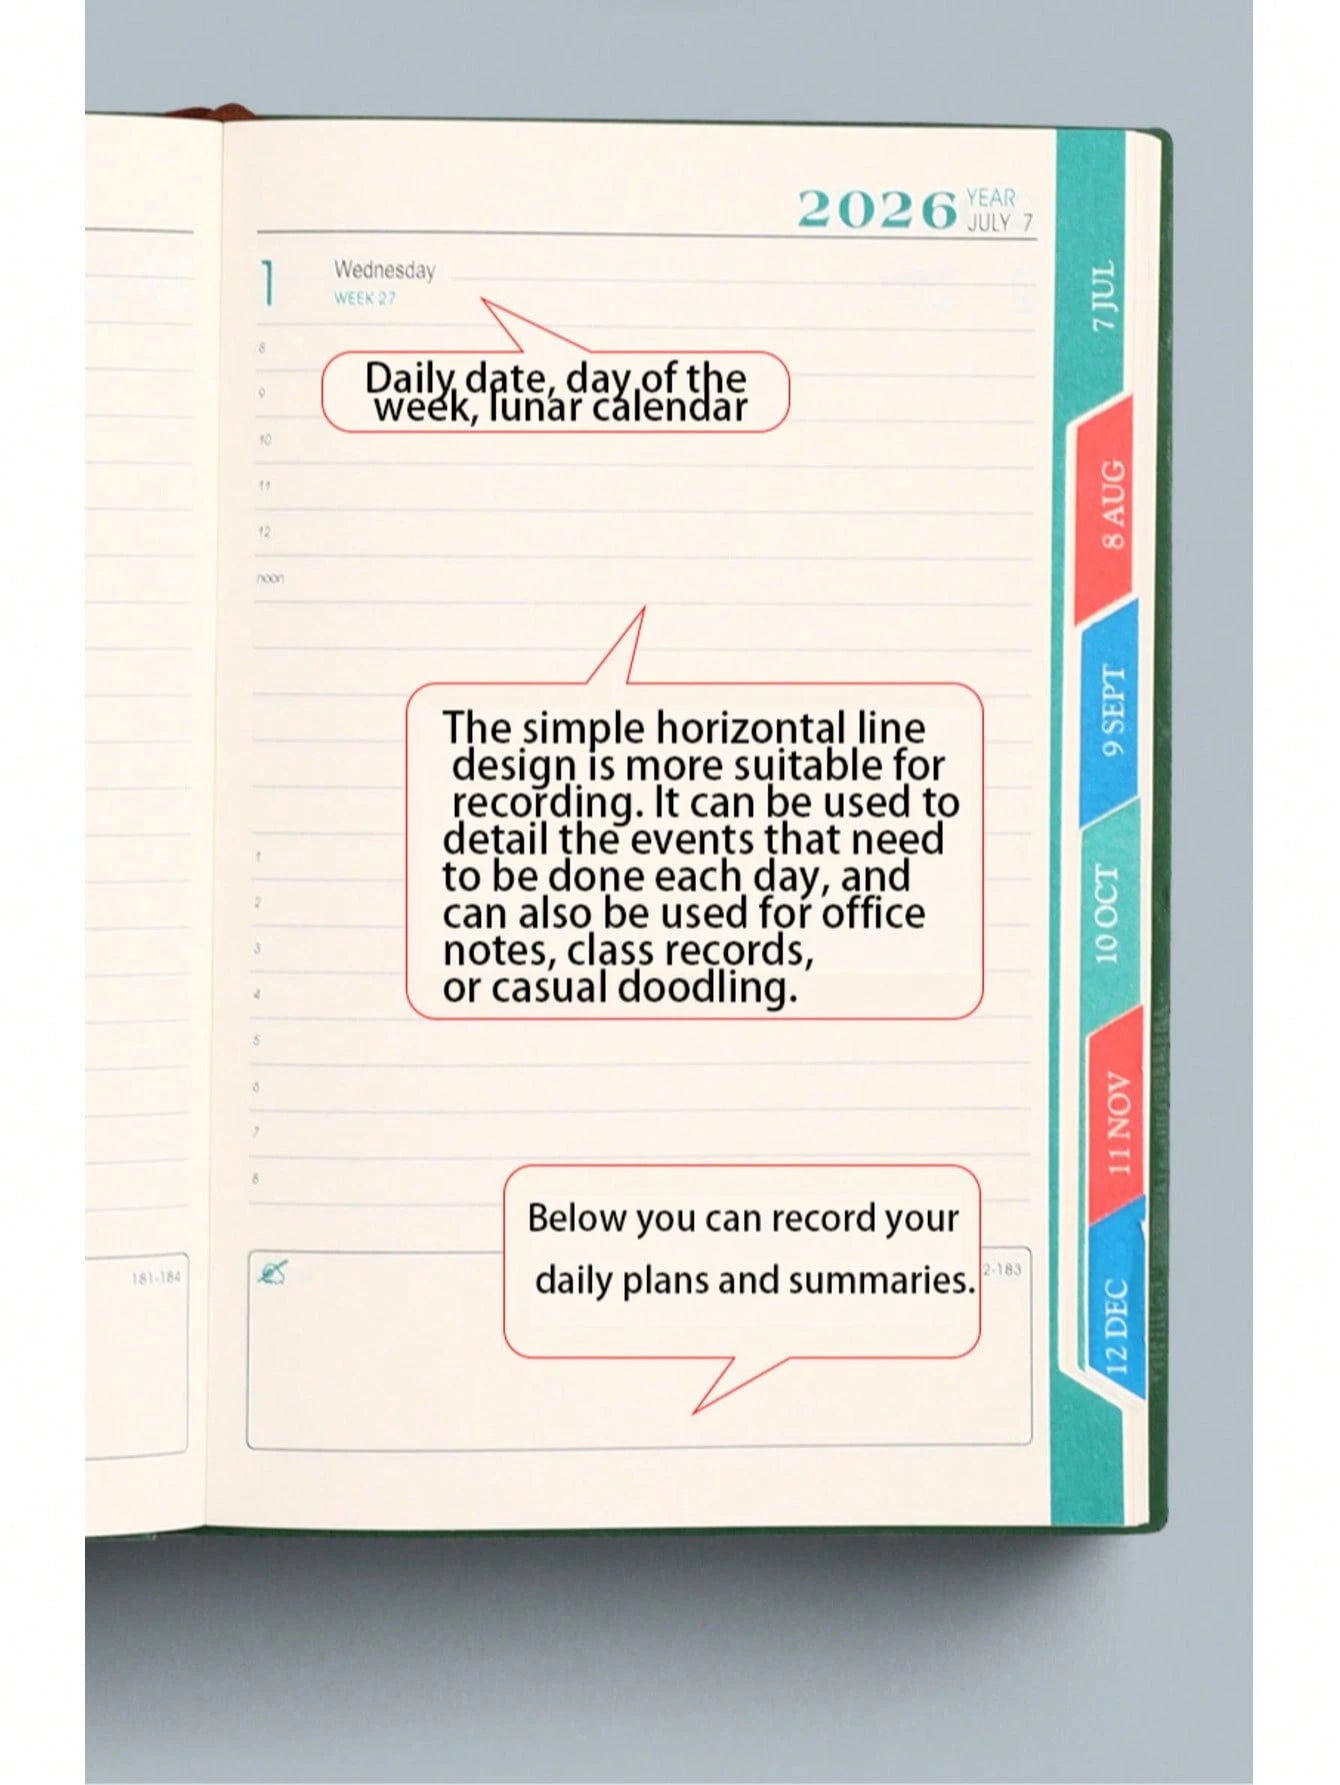 2026 YEAR
JULY 7
1 Wednesday
WEEK 27
Daily date, day of the
week, lunar calendar
8
9
10
11
12
noon
The simple horizontal line
design is more suitable for
recording. It can be used to
detail the events that need
to be done each day, and
can also be used for office
notes, class records,
or casual doodling.
1
2
3
4
5
6
7
8
Below you can record your
daily plans and summaries.
181-184
2-183
7 JUL
8 AUG
9 SEPT
10 OCT
11 NOV
12 DEC